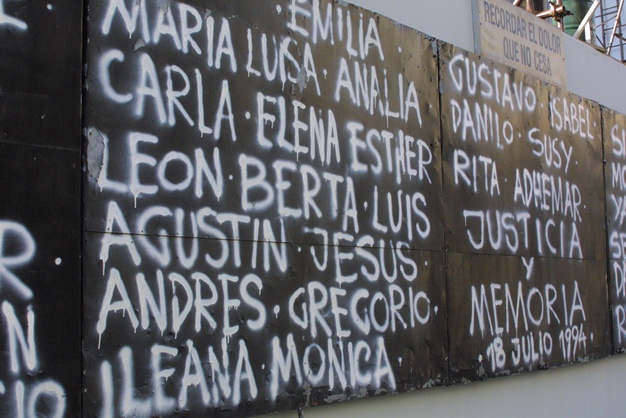 RECORDAR EL DOLOR
QUE NO CESA
· EMILIA ·
MARIA LUISA · ANALIA
CARLA · ELENA ESTHER
LEON · BERTA · LUIS
AGUSTIN JESUS ·
ANDRES · GREGORIO ·
ILEANA · MONICA ·
GUSTAVO · ISABEL
DANILO · SUSY ·
RITA · ADHEMAR
JUSTICIA
Y
MEMORIA
· 18 JULIO 1994 ·